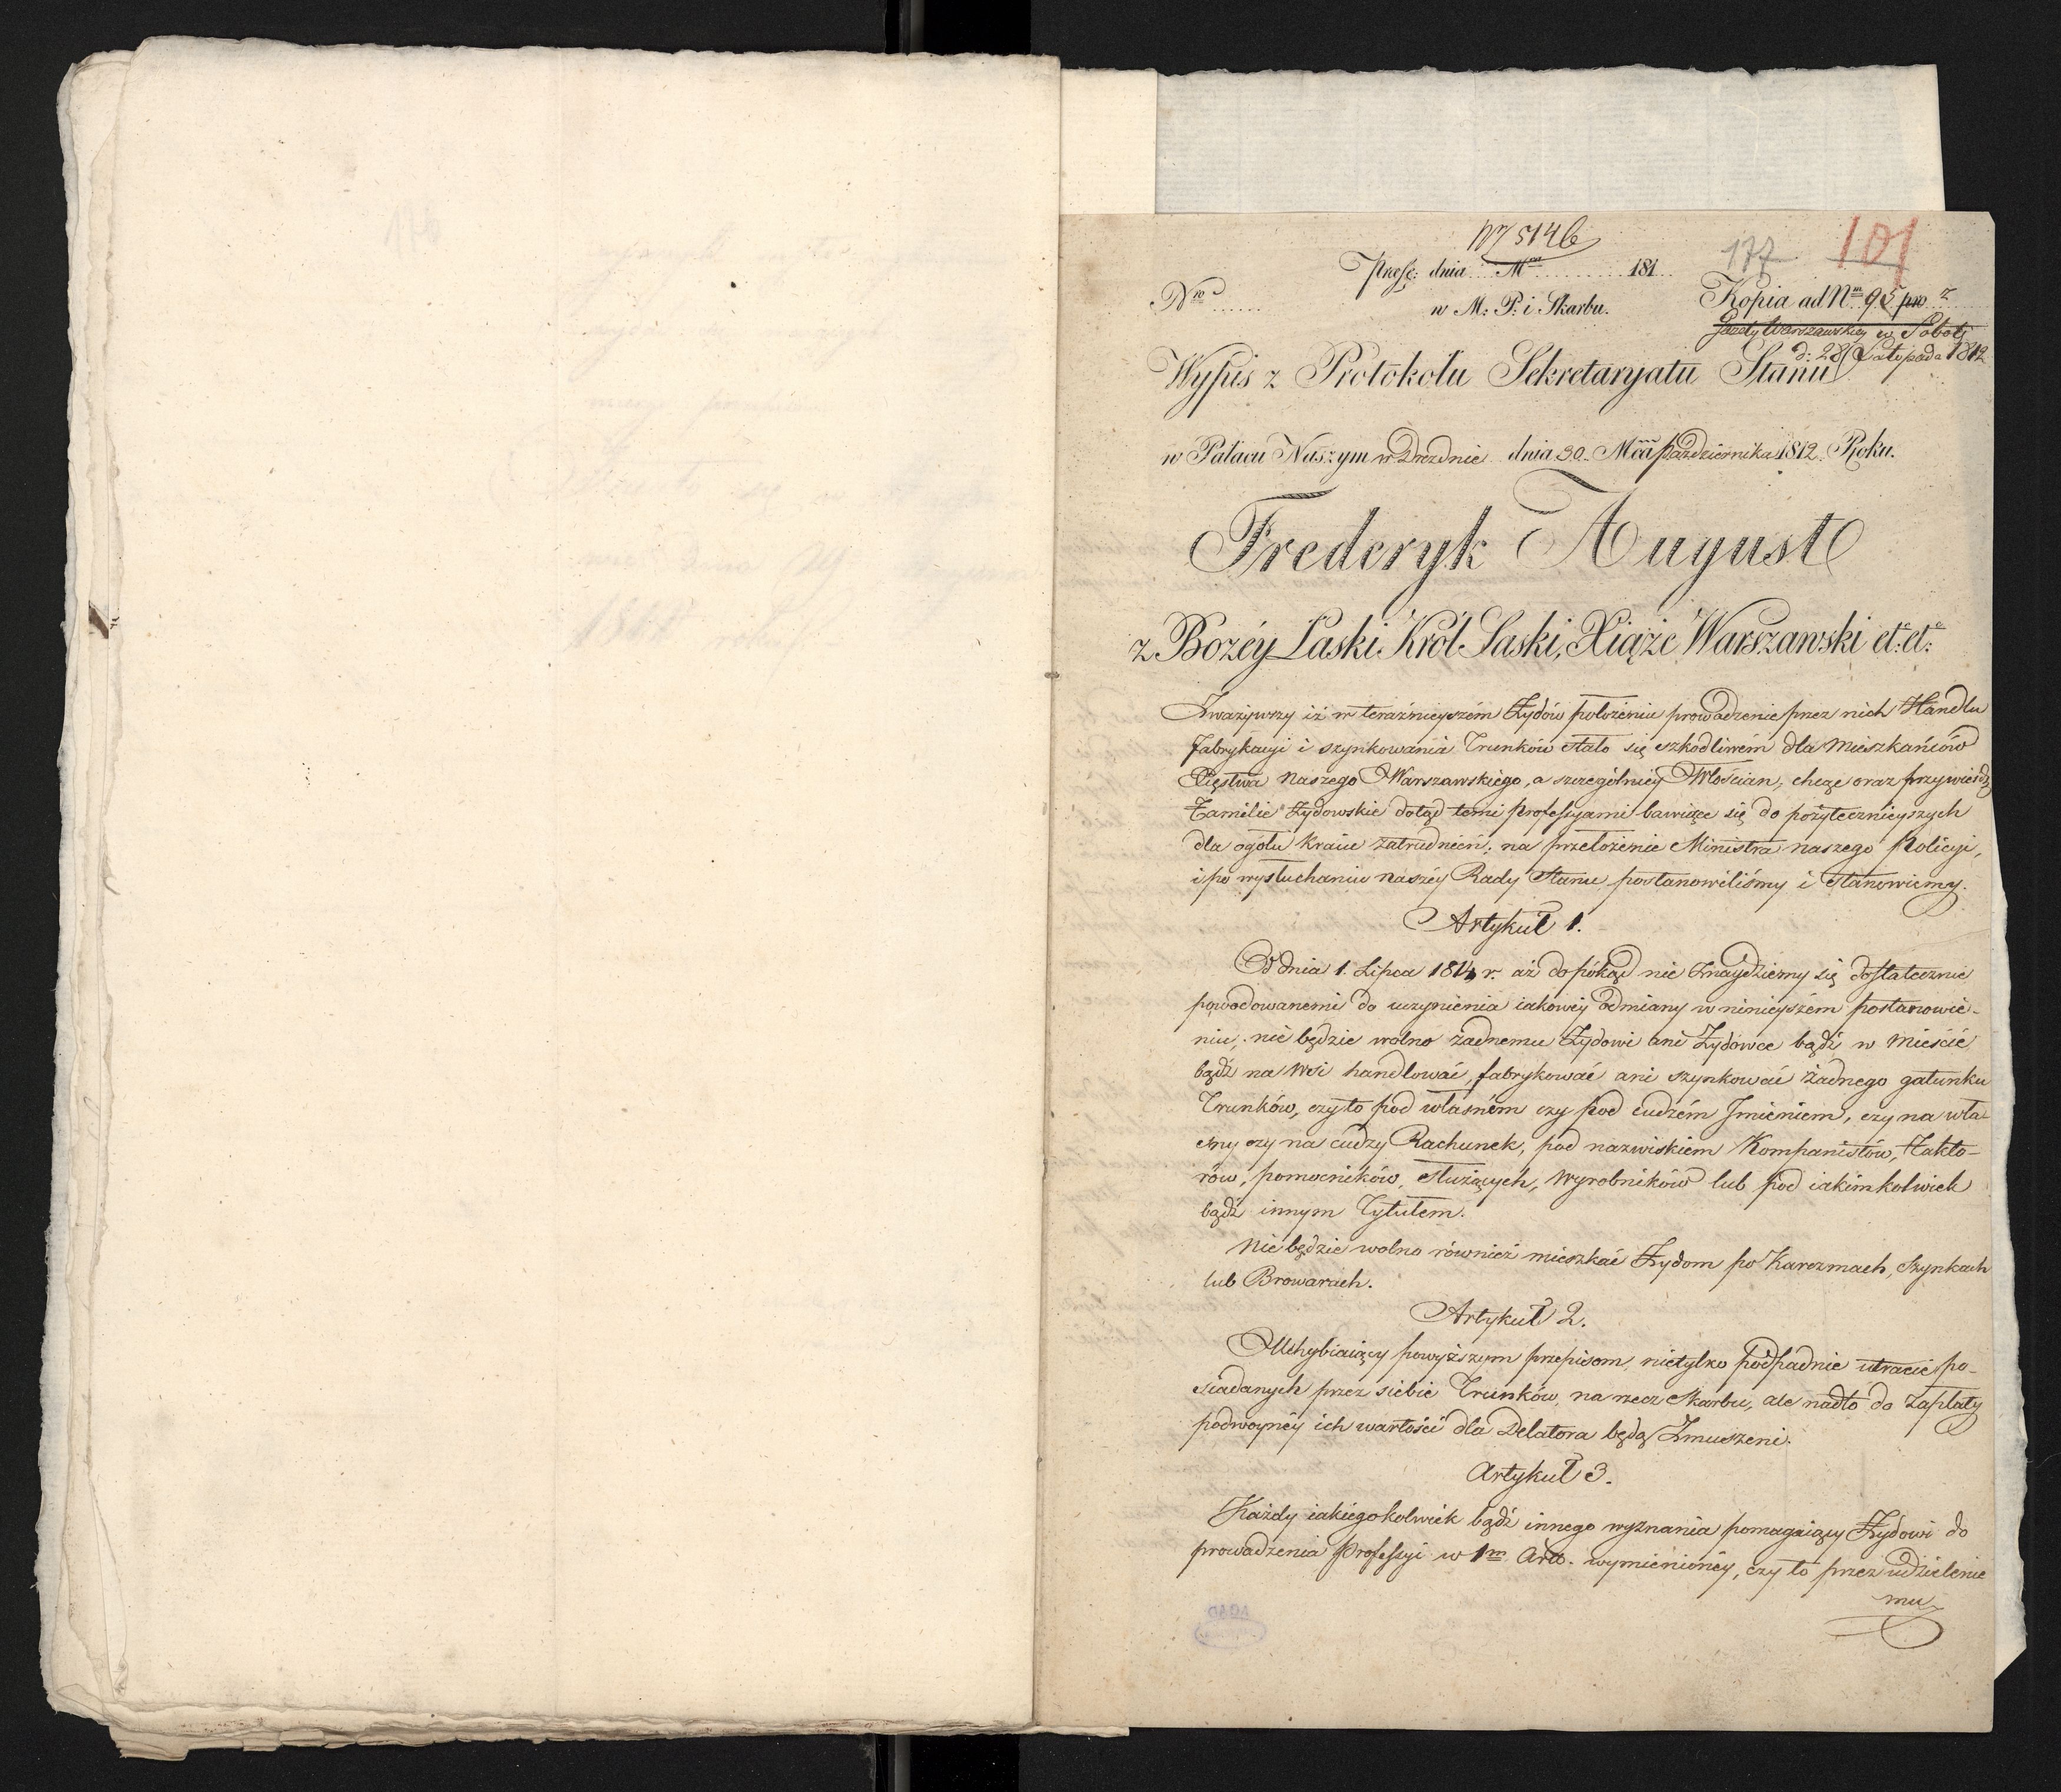 N 5146
177 101
Præs: dnia .... Mca ......... 181..
Nro ......
w M: P: i Skarbu.
Kopia ad Nm 95 pro z
Gazety Warszawskiey w Sobotę
d: 28 Listopada 1812
Wypis z Protokołu Sekretaryatu Stanu
w Pałacu Naszym w Dreznie dnia 30. Mca Października 1812. Roku.
Frederyk August
z Bożéy Łaski Król Saski, Xiąże Warszawski etc: etc:
Zważywszy iż w teraźnieyszém Żydów położeniu prowadzenie przez nich Handlu
fabrykacyi i szynkowania Trunków stało się szkodliwém dla Mieszkańców
Xięstwa Naszego Warszawskiego, a szczególniey Włościan, chcąc oraz przywieśdź
Familie Żydowskie dotąd temi professyami bawiące się do pożytecznieyszych
dla ogółu Kraiu zatrudnień; na przełożenie Ministra naszego Policyi,
i po wysłuchaniu naszéy Rady Stanu postanowiliśmy i stanowiemy.
Artykuł 1.
Od dnia 1. Lipca 1814 r. aż dopókąd nie znaydziemy się dostatecznie
powodowanemi do uczynienia iakowéy odmiany w ninieyszém postanowie-
niu, nie będzie wolno żadnemu Żydowi ani Żydówce bądź w Mieście
bądź na Wsi handlować, fabrykować ani szynkować żadnego gatunku
Trunków, czyto pod własném czy pod cudzém Jmieniem, czy na wła-
sny czy na cudzy Rachunek, pod nazwiskiem Kompanistów, Fakto-
rów, pomocników, służących, Wyrobników lub pod iakimkolwiek
bądź innym Tytułem.
Nie będzie wolno również mieszkać Żydom po Karczmach, Szynkach
lub Browarach.
Artykuł 2.
Uchybiaiący powyższym przepisom, nietylko podpadnie utracie po-
siadanych przez siebie Trunków, na rzecz Skarbu, ale nadto do zapłaty
podwoynéy ich wartości dla Delatora będą Zmuszeni.
Artykuł 3.
Każdy iakiegokolwiek bądź innego wyznania pomagaiący Żydowi do
prowadzenia Professyi w 1m Art. wymienionéy, czy to przez udzielenie
mu
AGAD